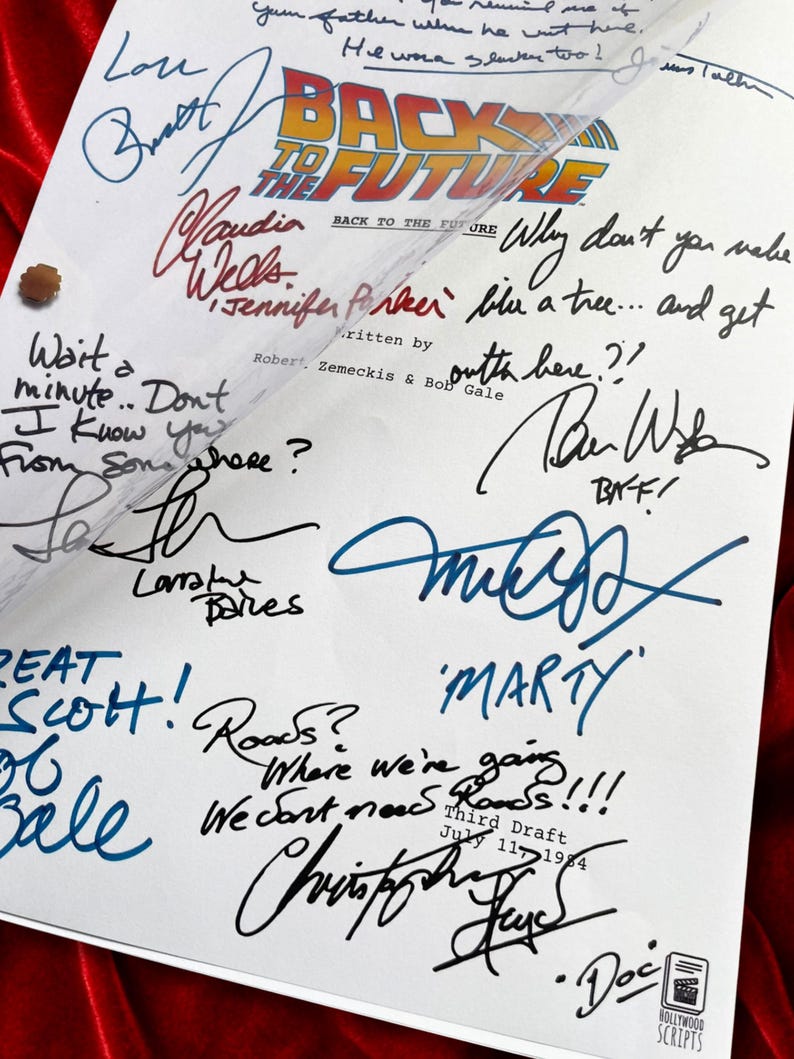 you remind me of
your father when he went here.
He was a slacker too! James Tolkan
Lou
BACK
TO THE FUTURE
TM
BACK TO THE FUTURE
Claudia
Wells.
'Jennifer Parker'
Why don't you make
like a tree... and get
outta here?!
Written by
Robert Zemeckis & Bob Gale
Wait a
minute.. Dont
I Know you
From somewhere?
Lea
Lorraine
Baines
BIFF!
'MARTY'
REAT
SCOTT!
ob
Gale
Roads?
Where we're going
We dont need Roads!!!
Third Draft
July 11, 1984
Christopher
Lloyd
"Doc"
HOLLYWOOD
SCRIPTS